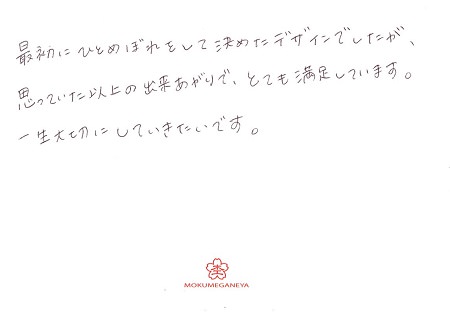 最初にひとめぼれをして決めたデザインでしたが、
思っていた以上の出来あがりで、とても満足しています。
一生大切にしていきたいです。
MOKUMEGANEYA